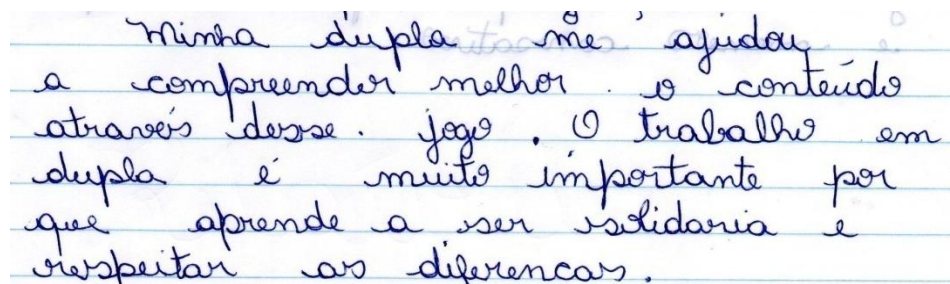 Minha dupla me ajudou
a compreender melhor . o conteúdo
através desse . jogo . O trabalho em
dupla é muito importante por
que aprende a ser solidaria e
respeitar as diferencas.